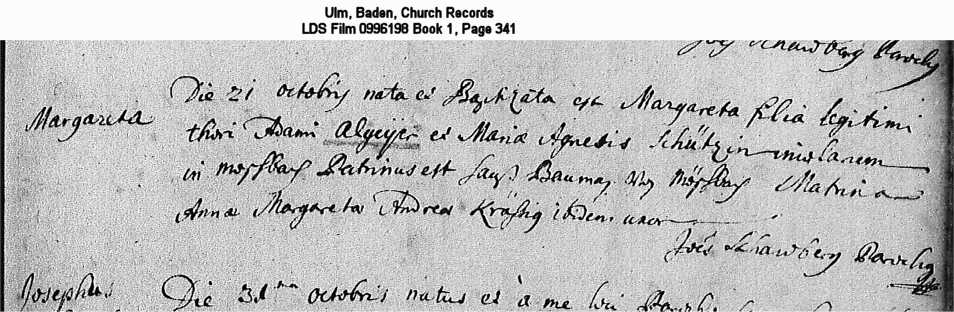 Ulm, Baden, Church Records
LDS Film 0996198 Book 1, Page 341
Joes Schawberg Parochus
Margareta
Die 21 octobris nata et Baptizata est Margareta filia legitimi
thori Adami Algeijer et Mariæ Agnetis Schützin incolarum
in mösbach Patrinus est Baumaz Von Mösbach Matrina
Anna Margareta Andreæ ibidem uxor
Joes Schawberg Parochus
Josephus
Die 31 octobris natus et a me